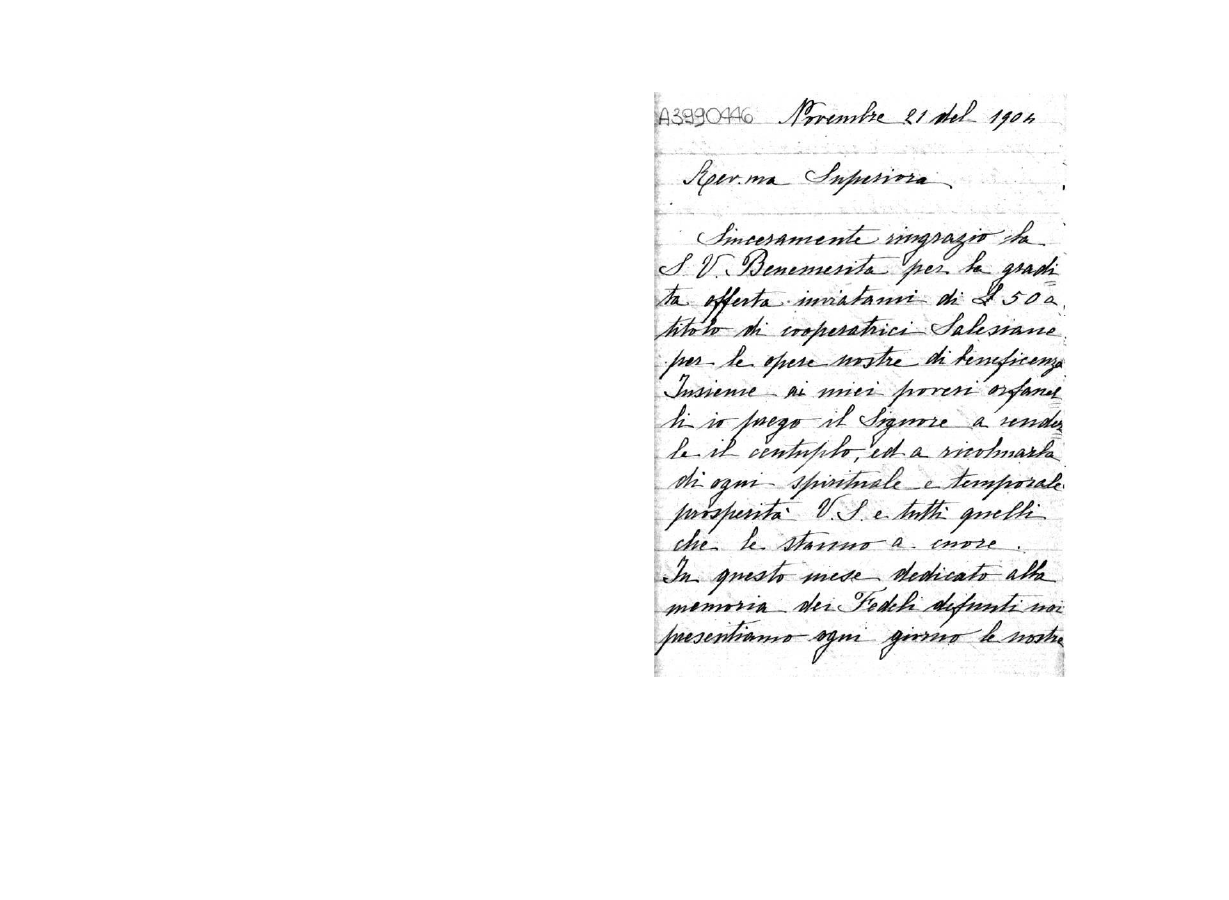 A3990446 Novembre 21 del 1904
Rev.ma Superiora
Sinceramente ringrazio la
S V. Benemerita per la gradi
ta offerta inviatami di £ 50 a
titolo di cooperatrici Salesiane
per le opere nostre di beneficenza
Insieme ai miei poveri orfanel
li io prego il Signore a render
le il centuplo, ed a ricolmarla
di ogni spirituale e temporale
prosperità V. S. e tutti quelli
che le stanno a cuore.
In questo mese dedicato alla
memoria dei Fedeli defunti noi
presentiamo ogni giorno le nostre